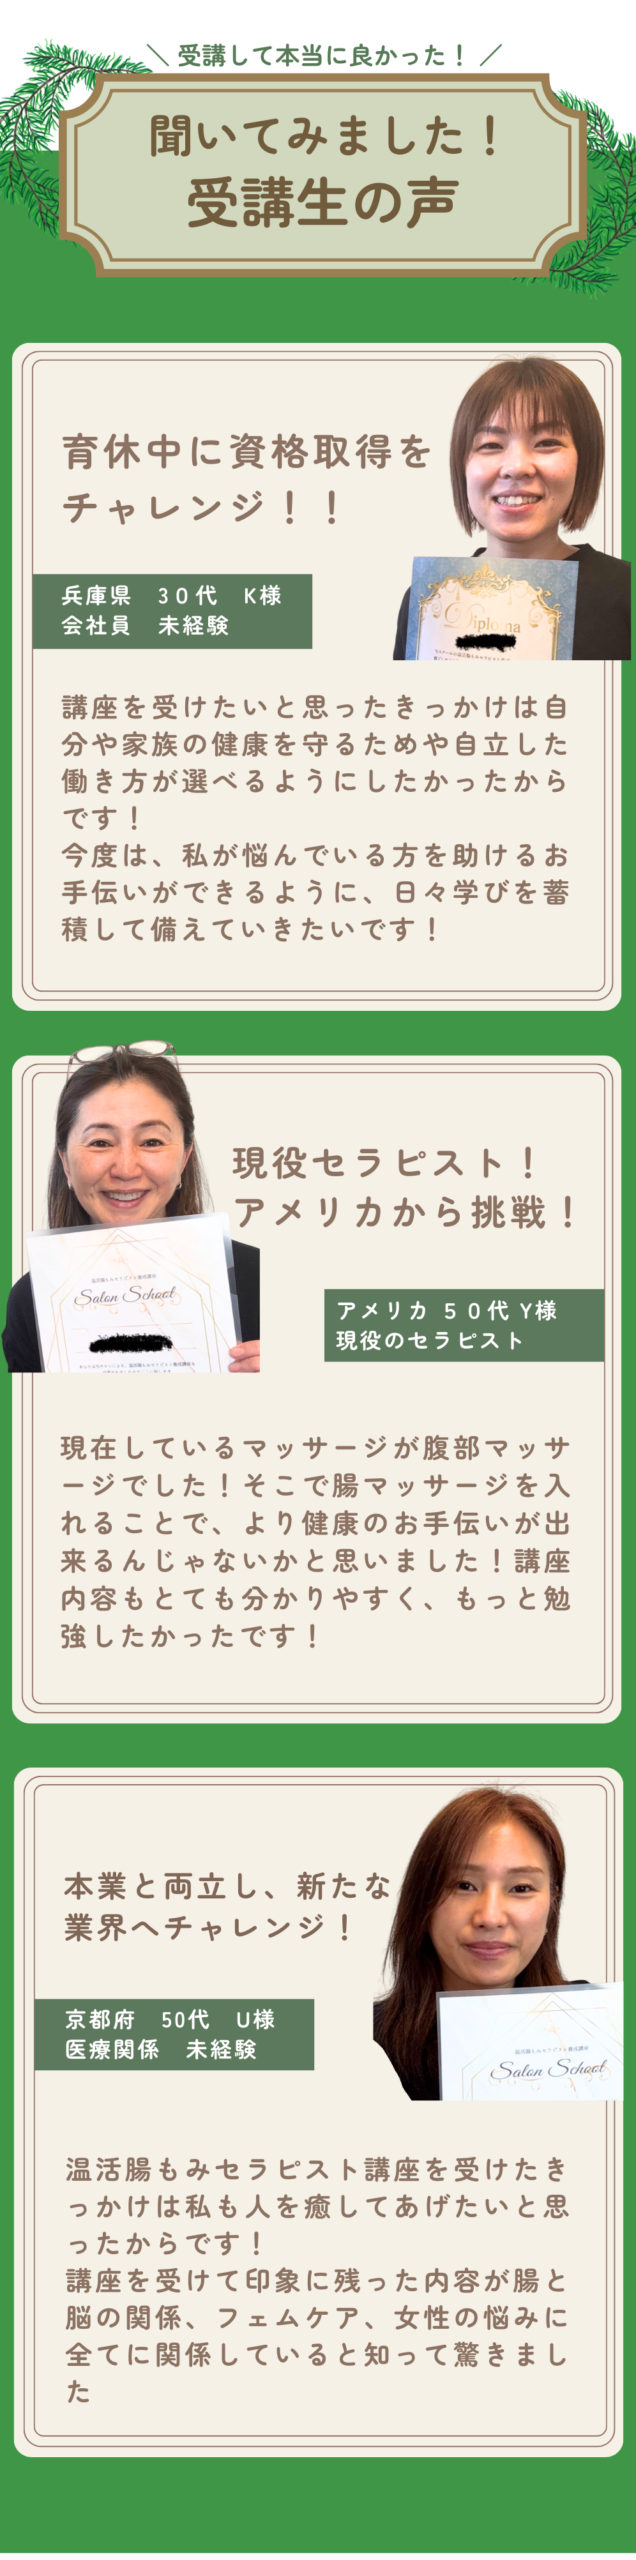 ＼ 受講して本当に良かった！ ／
聞いてみました！
受講生の声
育休中に資格取得を
チャレンジ！！
Diploma
兵庫県　３０代　K様
会社員　未経験
講座を受けたいと思ったきっかけは自
分や家族の健康を守るためや自立した
働き方が選べるようにしたかったから
です！
今度は、私が悩んでいる方を助けるお
手伝いができるように、日々学びを蓄
積して備えていきたいです！
現役セラピスト！
アメリカから挑戦！
温活腸もみセラピスト養成講座
Salon School
アメリカ ５０代 Y様
現役のセラピスト
現在しているマッサージが腹部マッサ
ージでした！そこで腸マッサージを入
れることで、より健康のお手伝いが出
来るんじゃないかと思いました！講座
内容もとても分かりやすく、もっと勉
強したかったです！
本業と両立し、新たな
業界へチャレンジ！
京都府　50代　U様
医療関係　未経験
温活腸もみセラピスト養成講座
Salon School
温活腸もみセラピスト講座を受けたき
っかけは私も人を癒してあげたいと思
ったからです！
講座を受けて印象に残った内容が腸と
脳の関係、フェムケア、女性の悩みに
全てに関係していると知って驚きまし
た